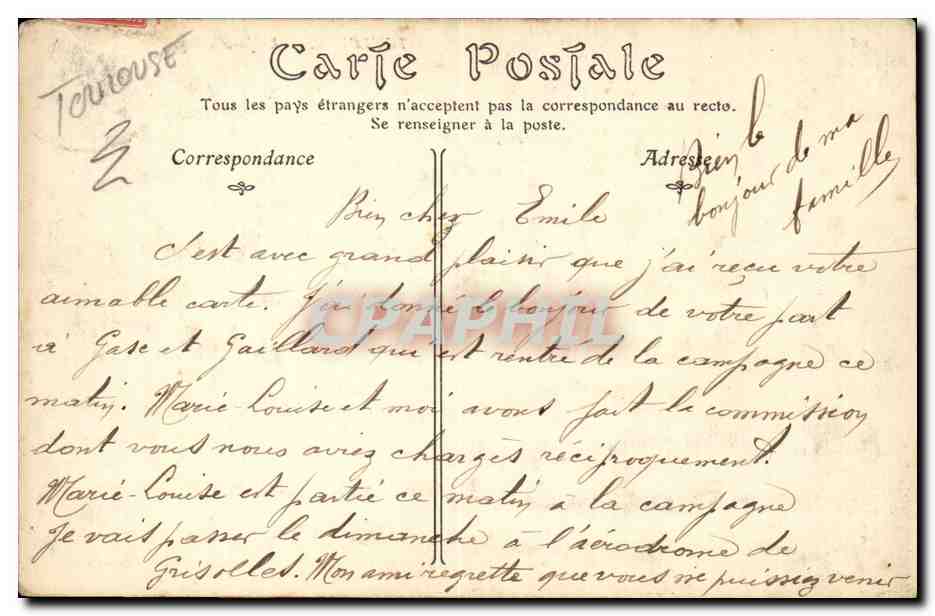 TOULOUSE
Carte Postale
Tous les pays étrangers n'acceptent pas la correspondance au recto.
Se renseigner à la poste.
Correspondance
Adresse
Bien le
bonjour de ma
famille
Bien cher Emile
C'est avec grand plaisir que j'ai reçu votre
aimable carte. J'ai donné le bonjour de votre part
à Gasc et Gaillard qui est rentré de la campagne ce
matin. Marie-Louise et moi avons fait la commission
dont vous nous aviez chargés réciproquement.
Marie-Louise est partie ce matin à la campagne
Je vais passer le dimanche à l'aérodrome de
Grisolles. Mon ami regrette que vous ne puissiez venir
CPAPHIL